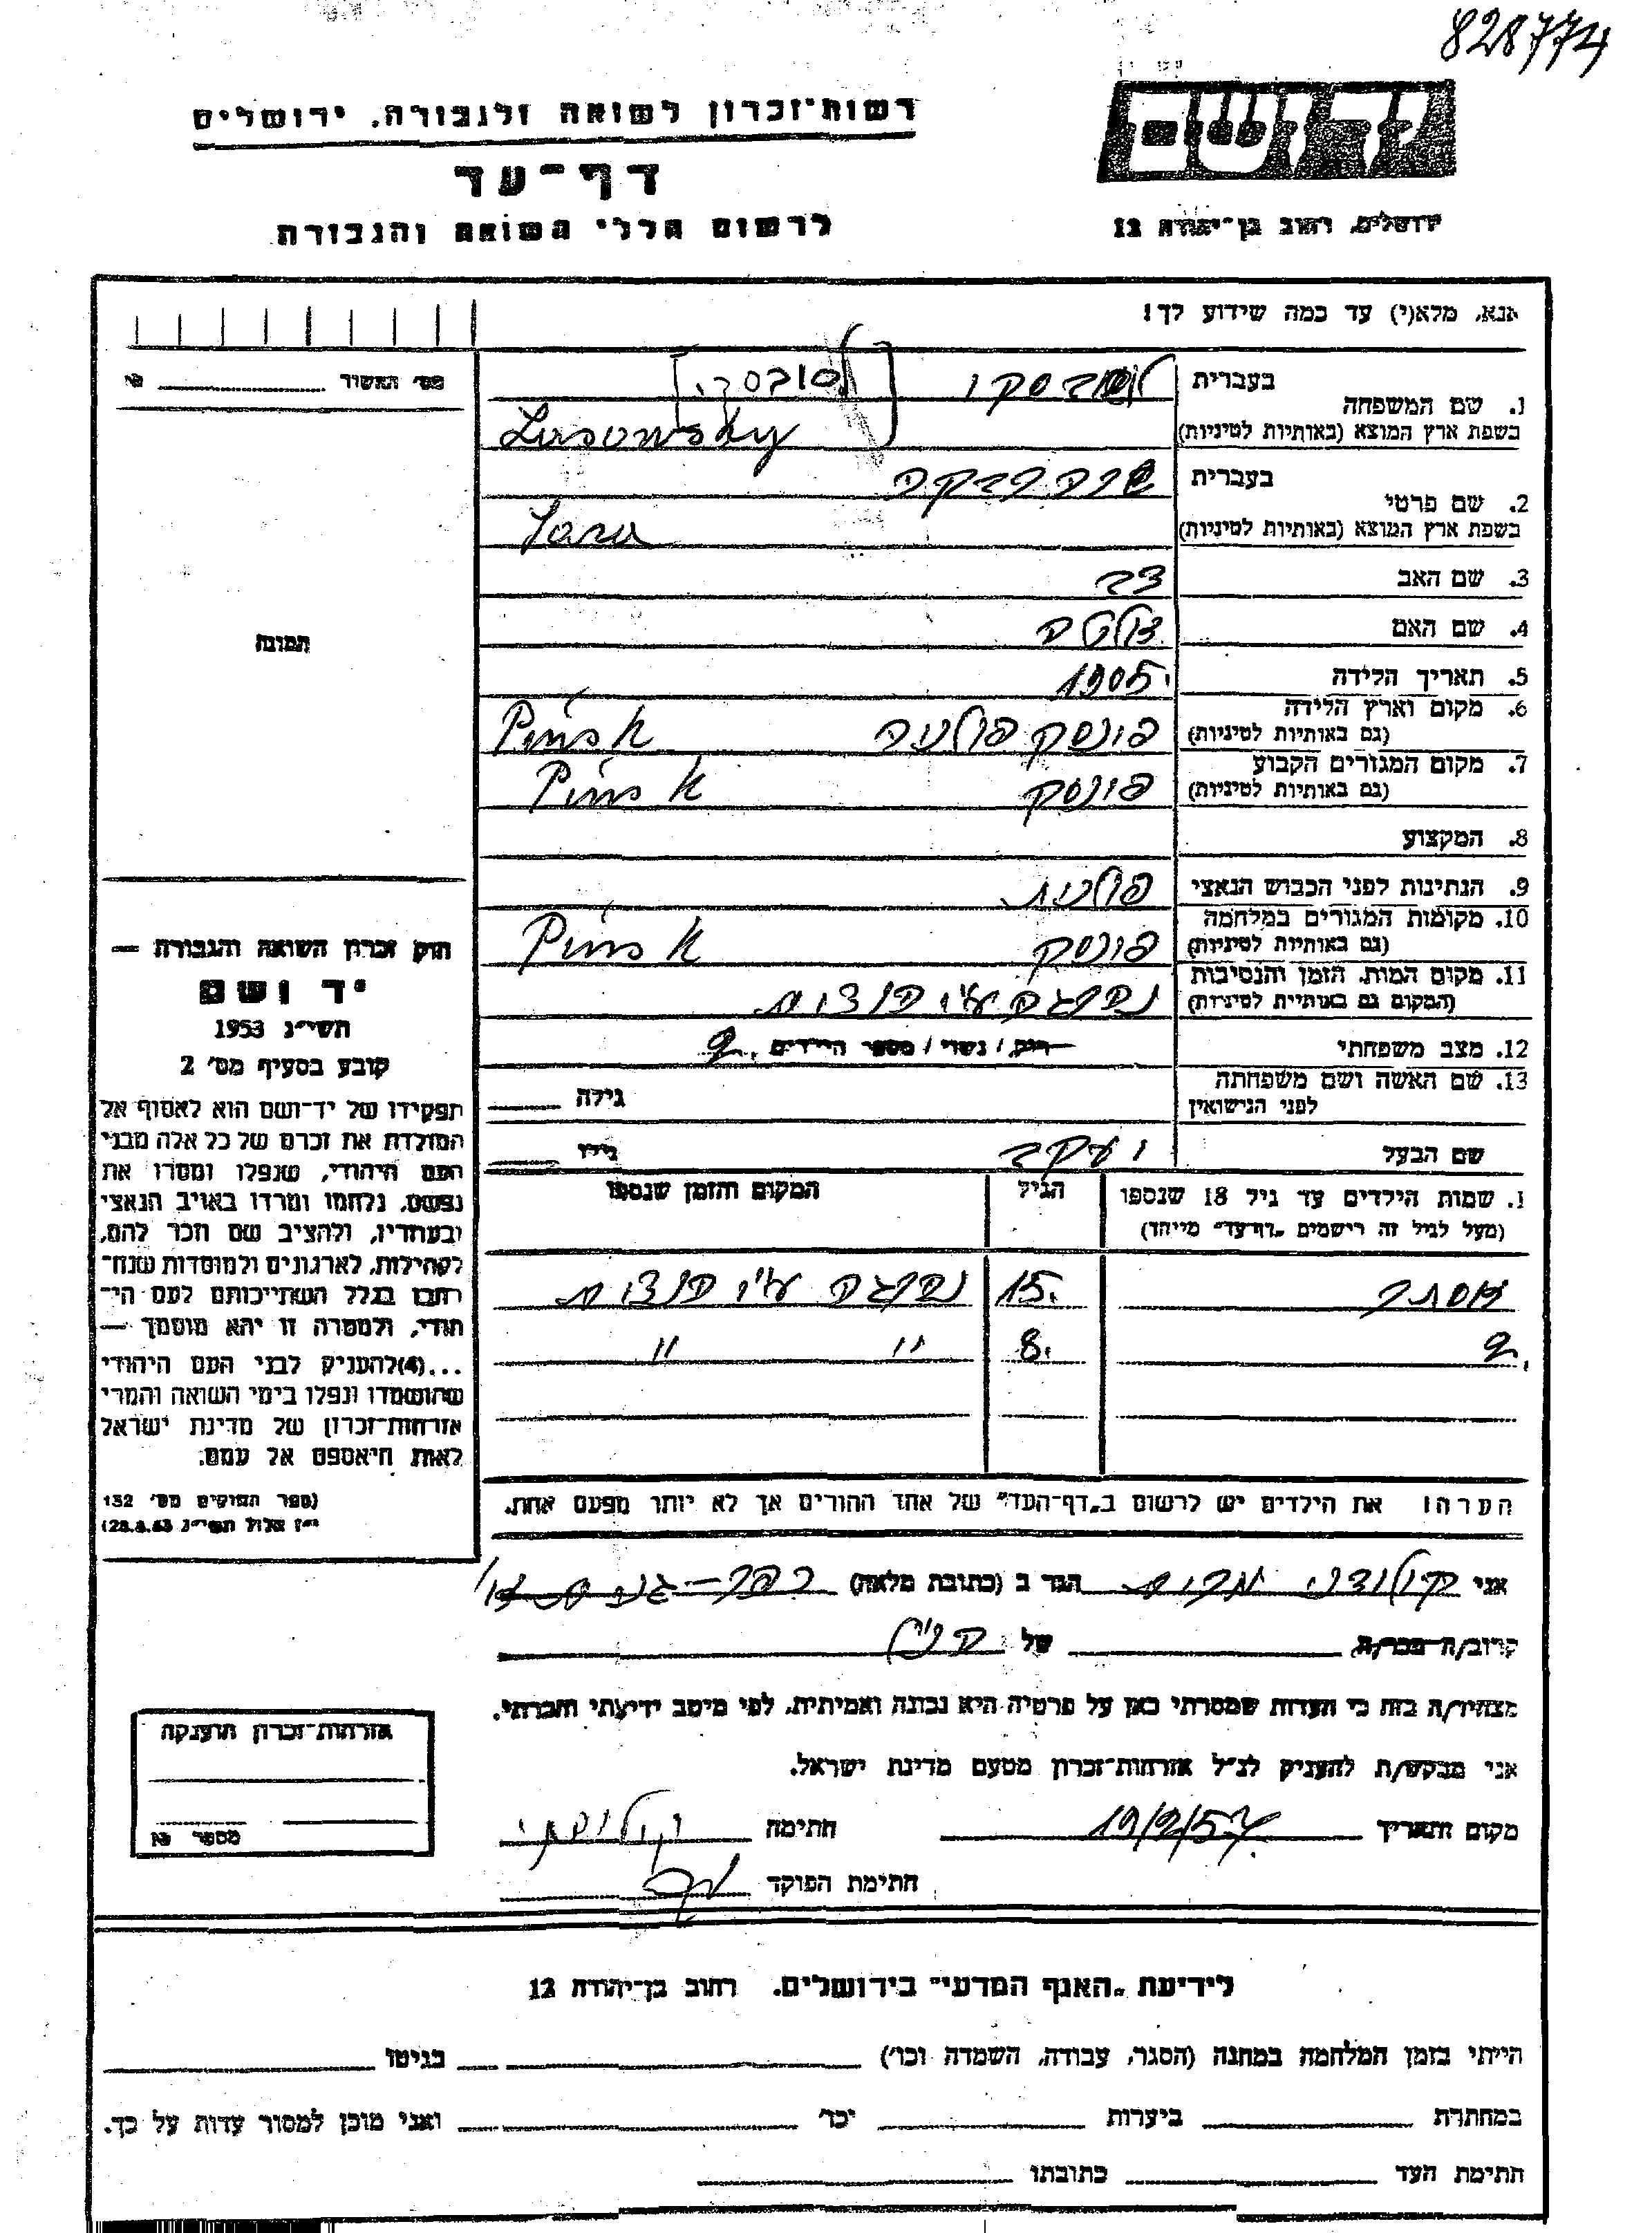 828774
יד ושם
רשות־זכרון לשואה ולגבורה, ירושלים
דף־עד
לרשום חללי השואה והגבורה
ירושלים, רחוב בן־יהודה 12
אנא, מלא(י) עד כמה שידוע לך!
מס' האשור
בעברית
[לוסבסקי]
1. שם המשפחה
בשפת ארץ המוצא (באותיות לטיניות) Lusowsky
בעברית שרה רבקה
2. שם פרטי
בשפת ארץ המוצא (באותיות לטיניות) Sara
3. שם האב צבי
4. שם האם זלטה
תמונה
5. תאריך הלידה 1905
6. מקום וארץ הלידה פינסק פולניה Pinsk
(גם באותיות לטיניות)
7. מקום המגורים הקבוע פינסק Pinsk
(גם באותיות לטיניות)
8. המקצוע
9. הנתינות לפני הכבוש הנאצי פולנית
10. מקומות המגורים במלחמה פינסק Pinsk
(גם באותיות לטיניות)
11. מקום המות, הזמן והנסיבות נהרגה ע"י הנצים
(המקום גם באותיות לטיניות)
12. מצב משפחתי רווק / נשוי / מספר הילדים 2
13. שם האשה ושם משפחתה גילה
לפני הנישואין
שם הבעל יעקב גילו
שמות הילדים עד גיל 18 שנספו הגיל המקום והזמן שנספו
(מעל לגיל זה רישמים "דף־עד" מיוחד)
אסתר 15 נהרגה ע"י הנצים
8 " "
הערה! את הילדים יש לרשום ב"דף־העד" של אחד ההורים אך לא יותר מפעם אחת.
חוק זכרון השואה והגבורה —
יד ושם
תשי"ג 1953
קובע בסעיף מס' 2
תפקידו של יד־ושם הוא לאסוף אל
המולדת את זכרם של כל אלה מבני
העם היהודי, שנפלו ומסרו את
נפשם, נלחמו ומרדו באויב הנאצי
ובעוזריו, ולהציב שם וזכר להם,
לקהילות, לארגונים ולמוסדות שנח־
רבו בגלל השתייכותם לעם הי־
הודי, ולמטרה זו יהא מוסמך —
...(4)להעניק לבני העם היהודי
שהושמדו ונפלו בימי השואה והמרי
אזרחות־זכרון של מדינת ישראל
לאות היאספם אל עמם.
(ספר החוקים מס' 132
י"ז אלול תשי"ג 28.8.53)
אני הגר ב (כתובת מלאה) כפר־גנים
קרוב/ה מכר/ה של
מצהיר/ה בזה כי העדות שמסרתי כאן על פרטיה היא נכונה ואמיתית, לפי מיטב ידיעתי והכרתי.
אני מבקש/ת להעניק לנ"ל אזרחות־זכרון מטעם מדינת ישראל.
מקום ותאריך 19/2/57 חתימה
חתימת הפוקד
אזרחות־זכרון הוענקה
מספר
לידיעת "האגף המדעי" בירושלים. רחוב בן־יהודה 12
הייתי בזמן המלחמה במחנה (הסגר, עבודה, השמדה וכו') בגיטו
במחתרת ביערות וכו' ואני מוכן למסור עדות על כך.
חתימת העד כתובתו